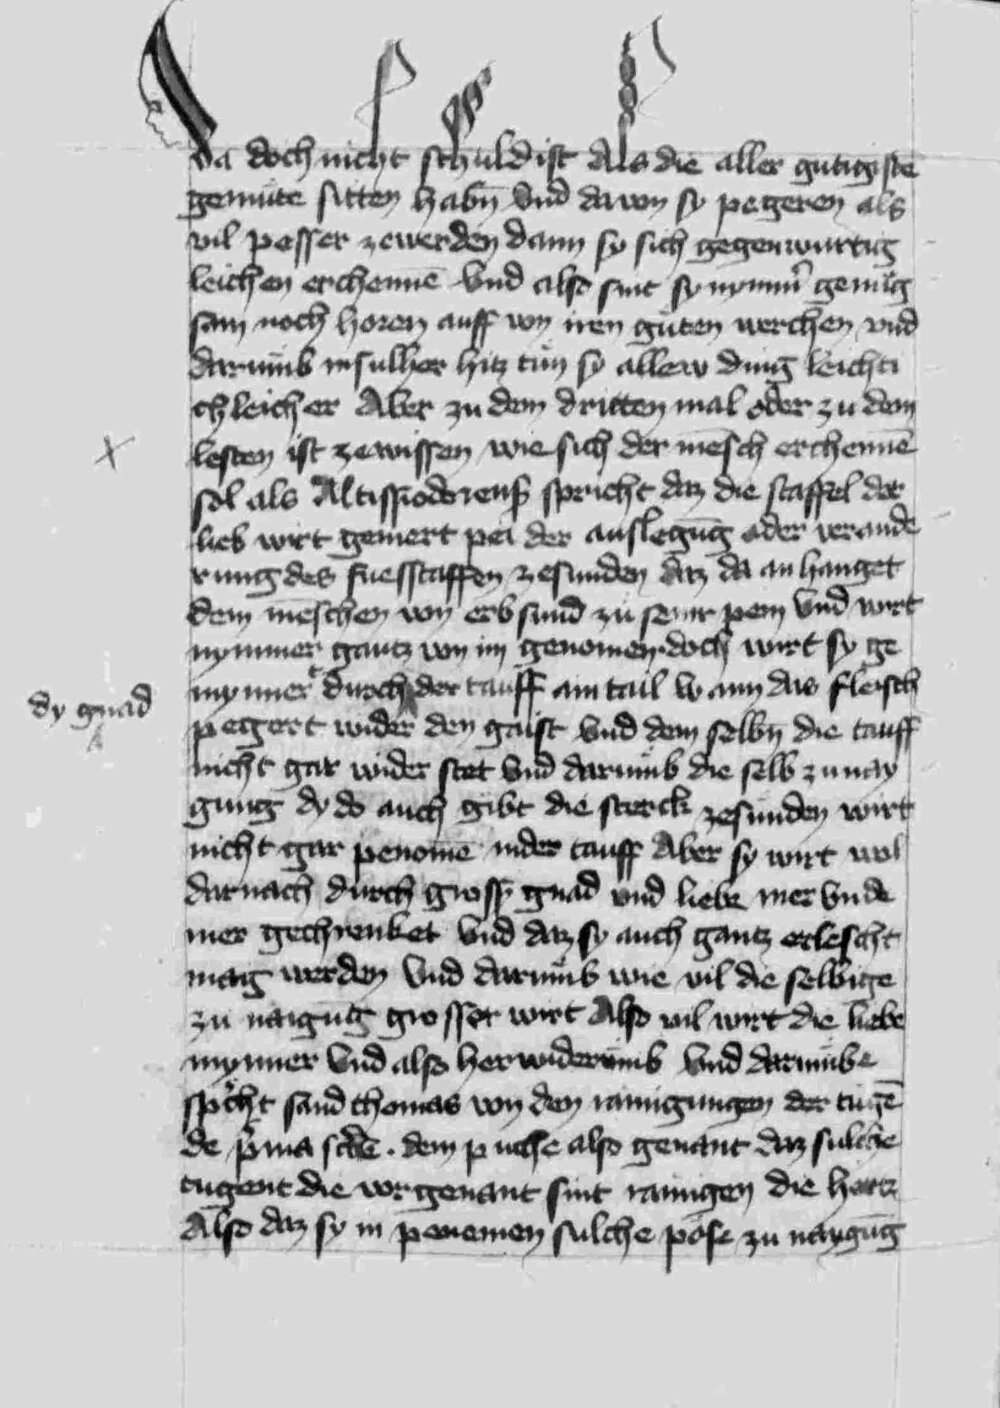 da doch nicht schuld ist Als die aller gutigiste
gemüte sitten habn̄ vnd dauon sy pegeren als
vil pesser zewerden dann sy sich gegenwurtig
leichen erchennē vnd also sint sy nymm̄ genüg
sam noch horen auff von iren güten werchen vnd
darumb in sulher hitz tün sy allew ding leichti
chleicher Aber zu dem dritten mal oder zu dem
lesten ist zewissen wie sich der mēsch erchennē
sol als Altisiodorenß spricht daz die staffel der
lieb wirt gemert pei der auslegūg oder verande
rung des fuesstaffen zesunden daz da an hanget
dem mēschen von erbsund zu seinr pein vnd wirt
nymmer gantz von im genomen doch wirt sy ge
mynnert durch der tauff ain tail Wann das fleisch
dy gnad
pegert wider den gaist vnd dem selbn̄ die tauff
nicht gar wider stet vnd darumb die selb zunay
gung dy do auch gibt die sterck zesunden wirt
nicht gar penomē in der tauff Aber sy wirt wol
darnach durch grosß gnad vnd liebe mer vnde
mer gechrenket vnd daz sy auch gantz erlescht
mag werden vnd darumb wie vil die selbige
zu naigūg grosser wirt Also vil wirt die liebe
mynner vnd also herwiderumb vnd darumbe
spͥcht sand thomas von den rainigungen der tugē
de pͥma scde . dem puche also genant daz sulche
tugent die vorgenant sint rainigen die hertz
Also daz sy in penemen sulche pöse zu naygūg